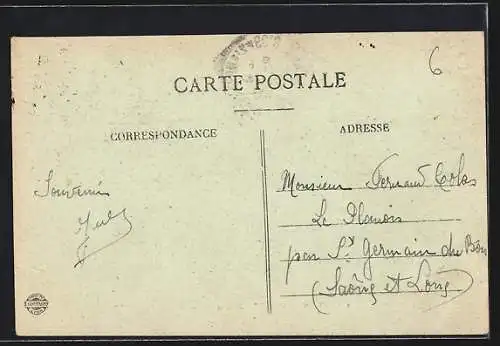 CARTE POSTALE
CORRESPONDANCE
ADRESSE
6
Souvenir
Monsieur Fernand Colas
Le Planois
par St Germain du Bois
(Saône et Loire)